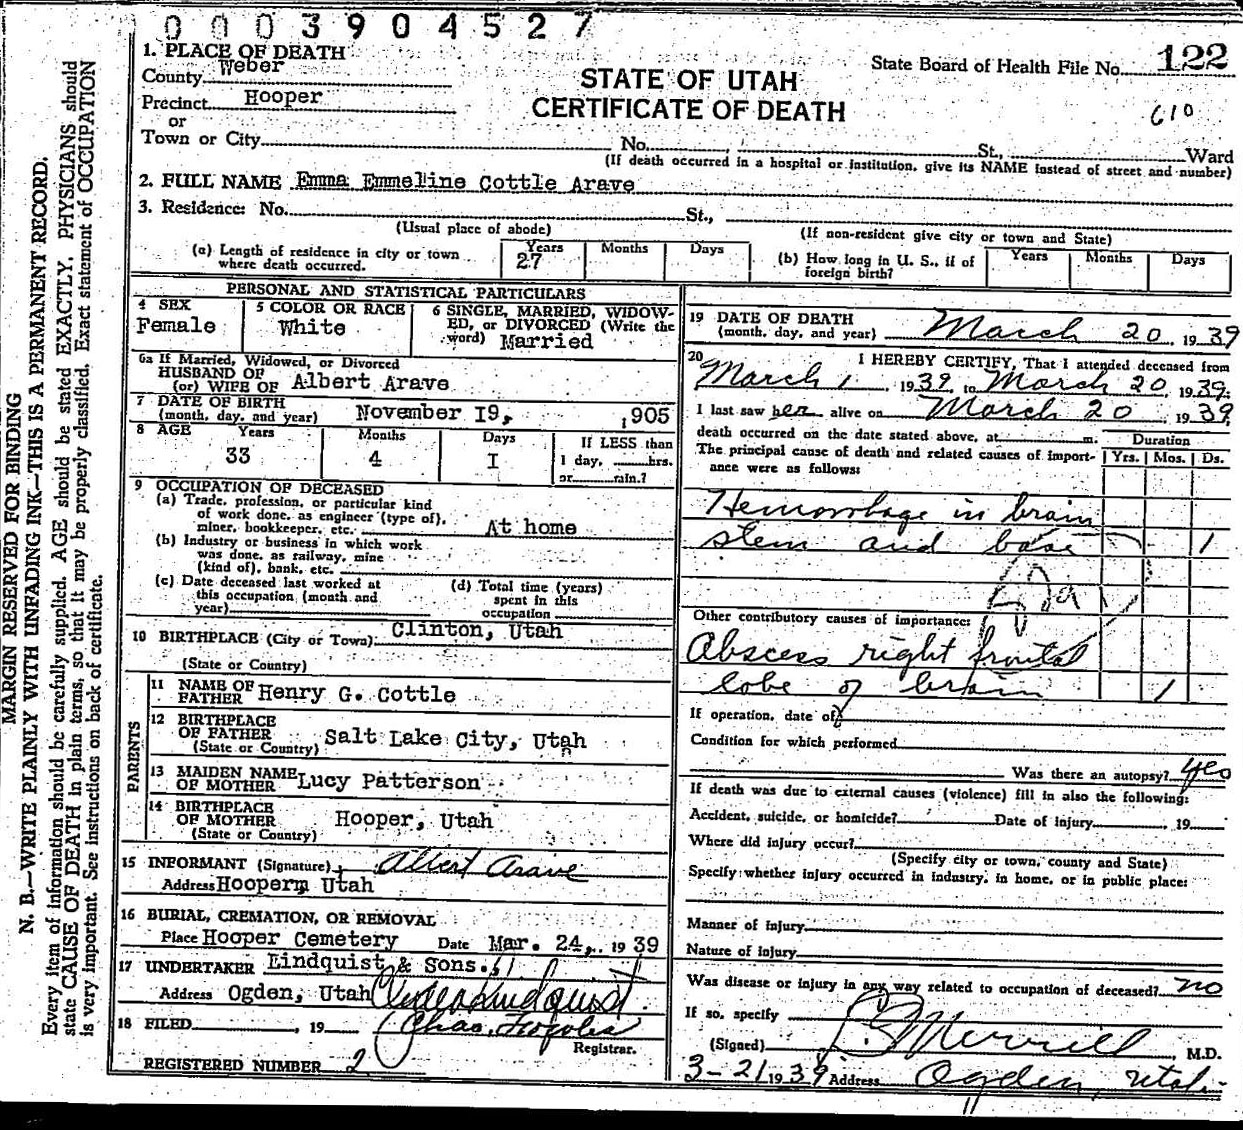 0003904527
1. PLACE OF DEATH
County Weber
Precinct Hooper
or
Town or City
STATE OF UTAH
CERTIFICATE OF DEATH
State Board of Health File No. 122
610
No. St., Ward
(If death occurred in a hospital or institution, give its NAME instead of street and number)
2. FULL NAME Emma Emmeline Cottle Arave
3. Residence: No. St.,
(Usual place of abode) (If non-resident give city or town and State)
(a) Length of residence in city or town where death occurred. Years 27 Months Days
(b) How long in U. S., if of foreign birth? Years Months Days
PERSONAL AND STATISTICAL PARTICULARS
4 SEX Female
5 COLOR OR RACE White
6 SINGLE, MARRIED, WIDOW-
ED, or DIVORCED (Write the
word) Married
6a If Married, Widowed, or Divorced
HUSBAND OF
(or) WIFE OF Albert Arave
7 DATE OF BIRTH
(month, day, and year) November I9, 1905
8 AGE Years 33 Months 4 Days I
If LESS than
1 day, hrs.
or min.?
9 OCCUPATION OF DECEASED
(a) Trade, profession, or particular kind
of work done, as engineer (type of),
miner, bookkeeper, etc. At home
(b) Industry or business in which work
was done, as railway, mine
(kind of), bank, etc.
(c) Date deceased last worked at
this occupation (month and
year)
(d) Total time (years)
spent in this
occupation
10 BIRTHPLACE (City or Town) Clinton, Utah
(State or Country)
PARENTS
11 NAME OF
FATHER Henry G. Cottle
12 BIRTHPLACE
OF FATHER
(State or Country) Salt Lake City, Utah
13 MAIDEN NAME
OF MOTHER Lucy Patterson
14 BIRTHPLACE
OF MOTHER
(State or Country) Hooper, Utah
15 INFORMANT (Signature) Albert Arave
Address Hooperm Utah
16 BURIAL, CREMATION, OR REMOVAL
Place Hooper Cemetery Date Mar. 24, 1939
17 UNDERTAKER Lindquist & Sons.
Address Ogden, Utah
18 FILED , 19
Registrar.
REGISTERED NUMBER 2
19 DATE OF DEATH
(month, day, and year) March 20 1939
20 I HEREBY CERTIFY, That I attended deceased from
March 1, 1939, to March 20, 1939;
I last saw her alive on March 20, 1939,
death occurred on the date stated above, at m.
Duration
The principal cause of death and related causes of import-
ance were as follows:
Yrs. Mos. Ds.
Hemorrhage in brain
stem and base 1
Other contributory causes of importance:
Abscess right frontal
lobe of brain 1
If operation, date of
Condition for which performed
Was there an autopsy? yes
If death was due to external causes (violence) fill in also the following:
Accident, suicide, or homicide? Date of injury , 19
Where did injury occur?
(Specify city or town, county and State)
Specify whether injury occurred in industry, in home, or in public place:
Manner of injury
Nature of injury
Was disease or injury in any way related to occupation of deceased? no
If so, specify
(Signed) Merrill, M.D.
3-21 1939 Address Ogden, Utah
MARGIN RESERVED FOR BINDING
N. B.—WRITE PLAINLY WITH UNFADING INK—THIS IS A PERMANENT RECORD.
Every item of information should be carefully supplied. AGE should be stated EXACTLY. PHYSICIANS should
state CAUSE OF DEATH in plain terms, so that it may be properly classified. Exact statement of OCCUPATION
is very important. See instructions on back of certificate.